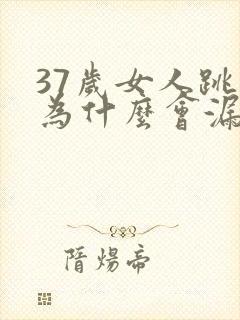 37歲女人跳
為什麼會漏
隋煬帝